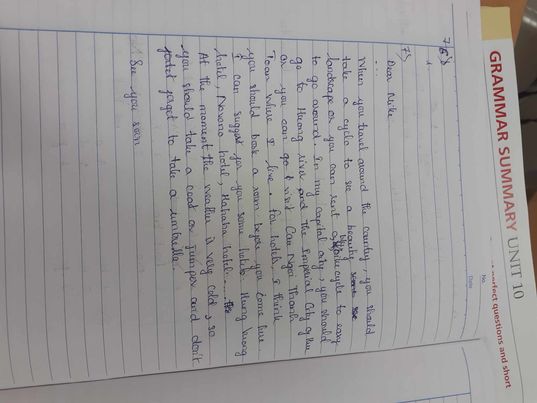 GRAMMAR SUMMARY UNIT 10
perfect questions and short
No.
Date
7
1.
7)
Dear Mike
...
When you travel around the country, you should
take a cyclo to see a beauty
landscape or you can rent a bike cycle to easy
to go around. In my capital city, you should
go to Huong river and the Imperial City of Hue
or you can go visit Cau Ngoi Thanh
Toan where I live. For hotels, I think
you should book a room before you come here
I can suggest for you some hotels: Hung Vuong
hotel, Navano hotel, Hahaha hotel....
At the moment the weather is very cold, so
you should take a coat or jumper and don't
forget to take a umbrella.
See you soon